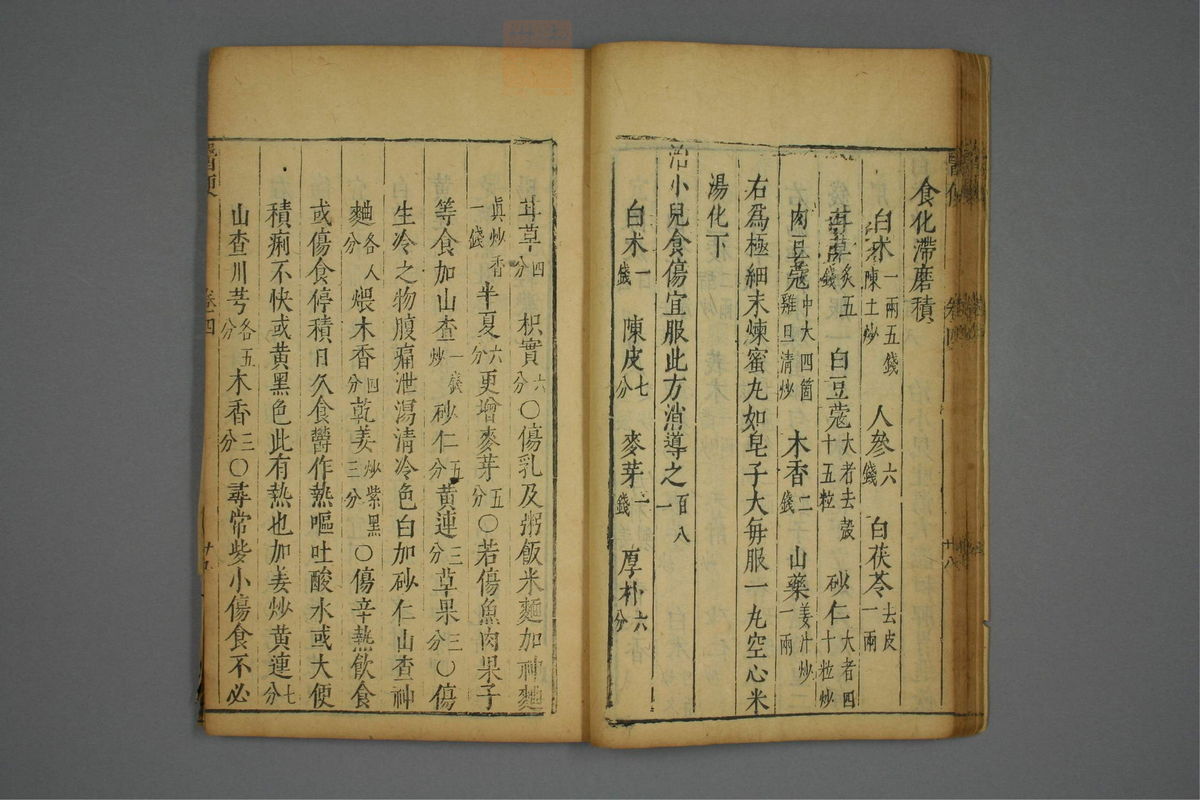 食化滯磨積
白朮一兩五錢陳土炒 人參六錢 白茯苓去皮一兩
甘草炙五錢 白豆蔻大者去殼十五粒 砂仁大者四十粒炒
肉豆蔻中大四箇雞旦清炒 木香二錢 山藥姜汁炒一兩
右爲極細末煉蜜丸如皂子大每服一丸空心米
湯化下
治小兒食傷宜服此方消導之 百八一
白朮一錢 陳皮七分 麥芽一錢 厚朴六分
甘草四分 枳實六分○傷乳及粥飯米麵加神麯
眞炒一錢香半夏六分更增麥芽五分○若傷魚肉果子
等食加山查一錢炒砂仁五分黃連三分草果三分○傷
生冷之物腹痛泄瀉清冷色白加砂仁山查神
麯各八分煨木香四分乾姜炒紫黑三分○傷辛熱飲食
或傷食停積日久食鬱作熱嘔吐酸水或大便
積痢不快或黃黑色此有熱也加姜炒黃連七分
山查川芎各五分木香三分○尋常些小傷食不必
醫便
卷四
十八